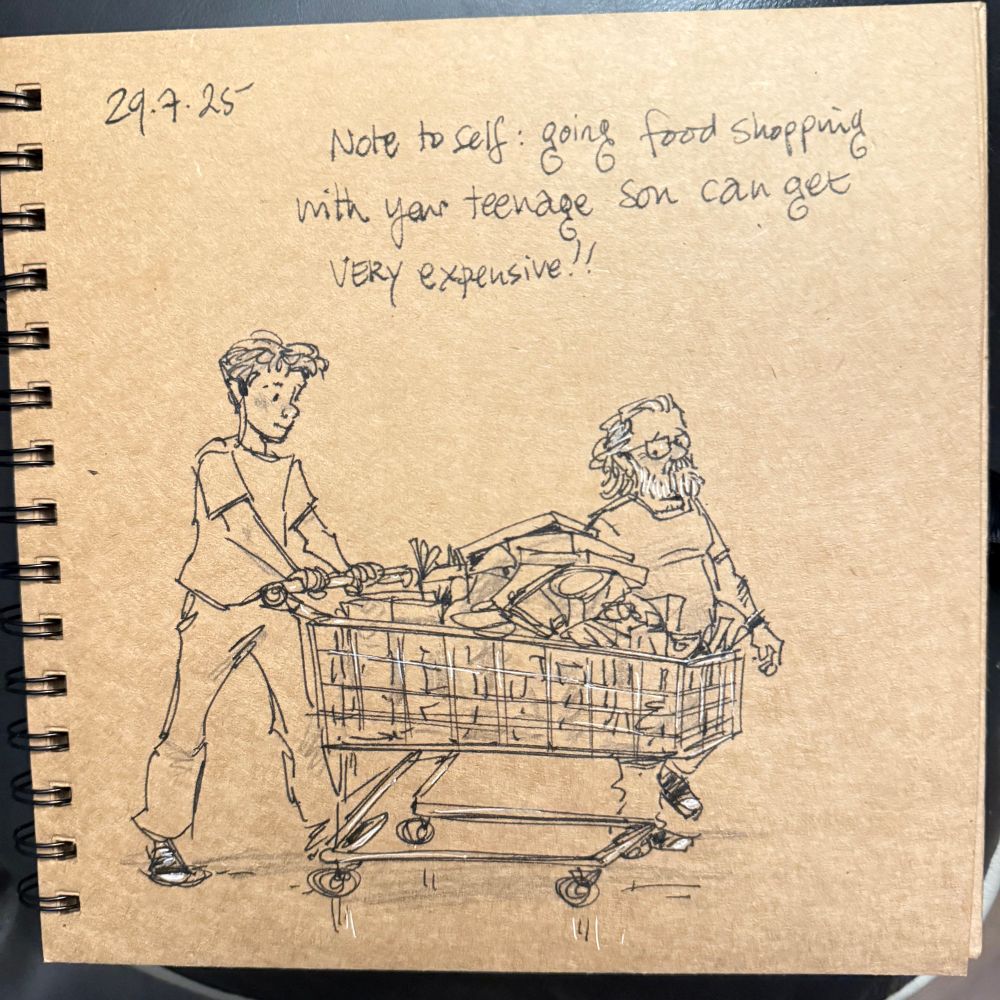 29.7.25
Note to self: going food shopping
with your teenage son can get
VERY expensive!!